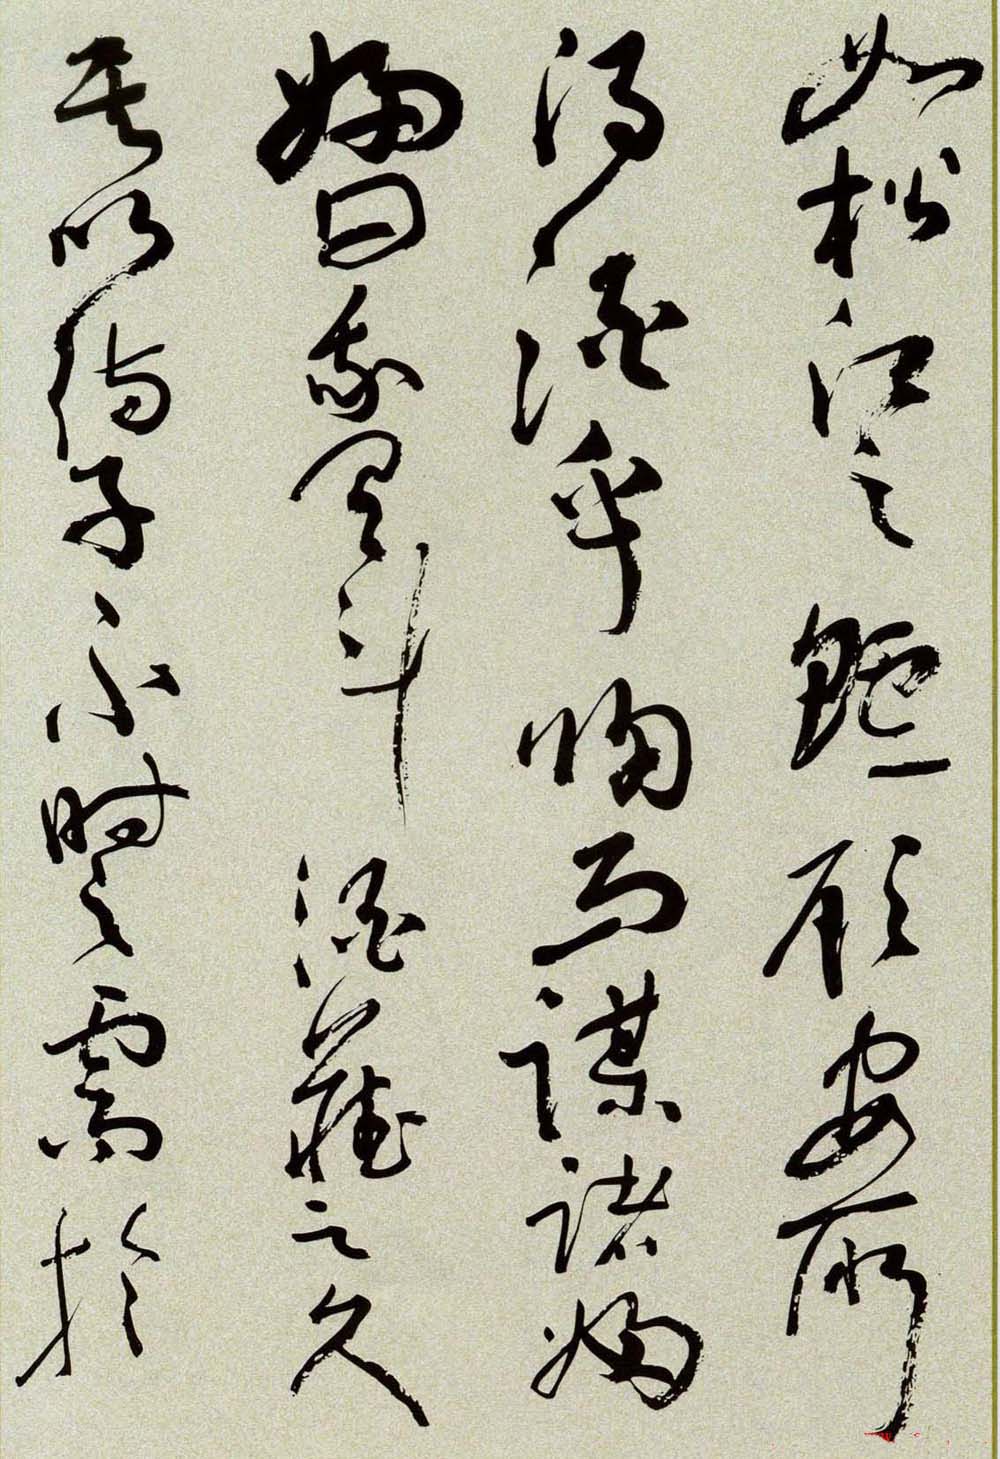 如松江之鱸顧安所
得酒乎歸而謀諸婦
婦曰我有斗酒藏之久
矣以待子不時之需於